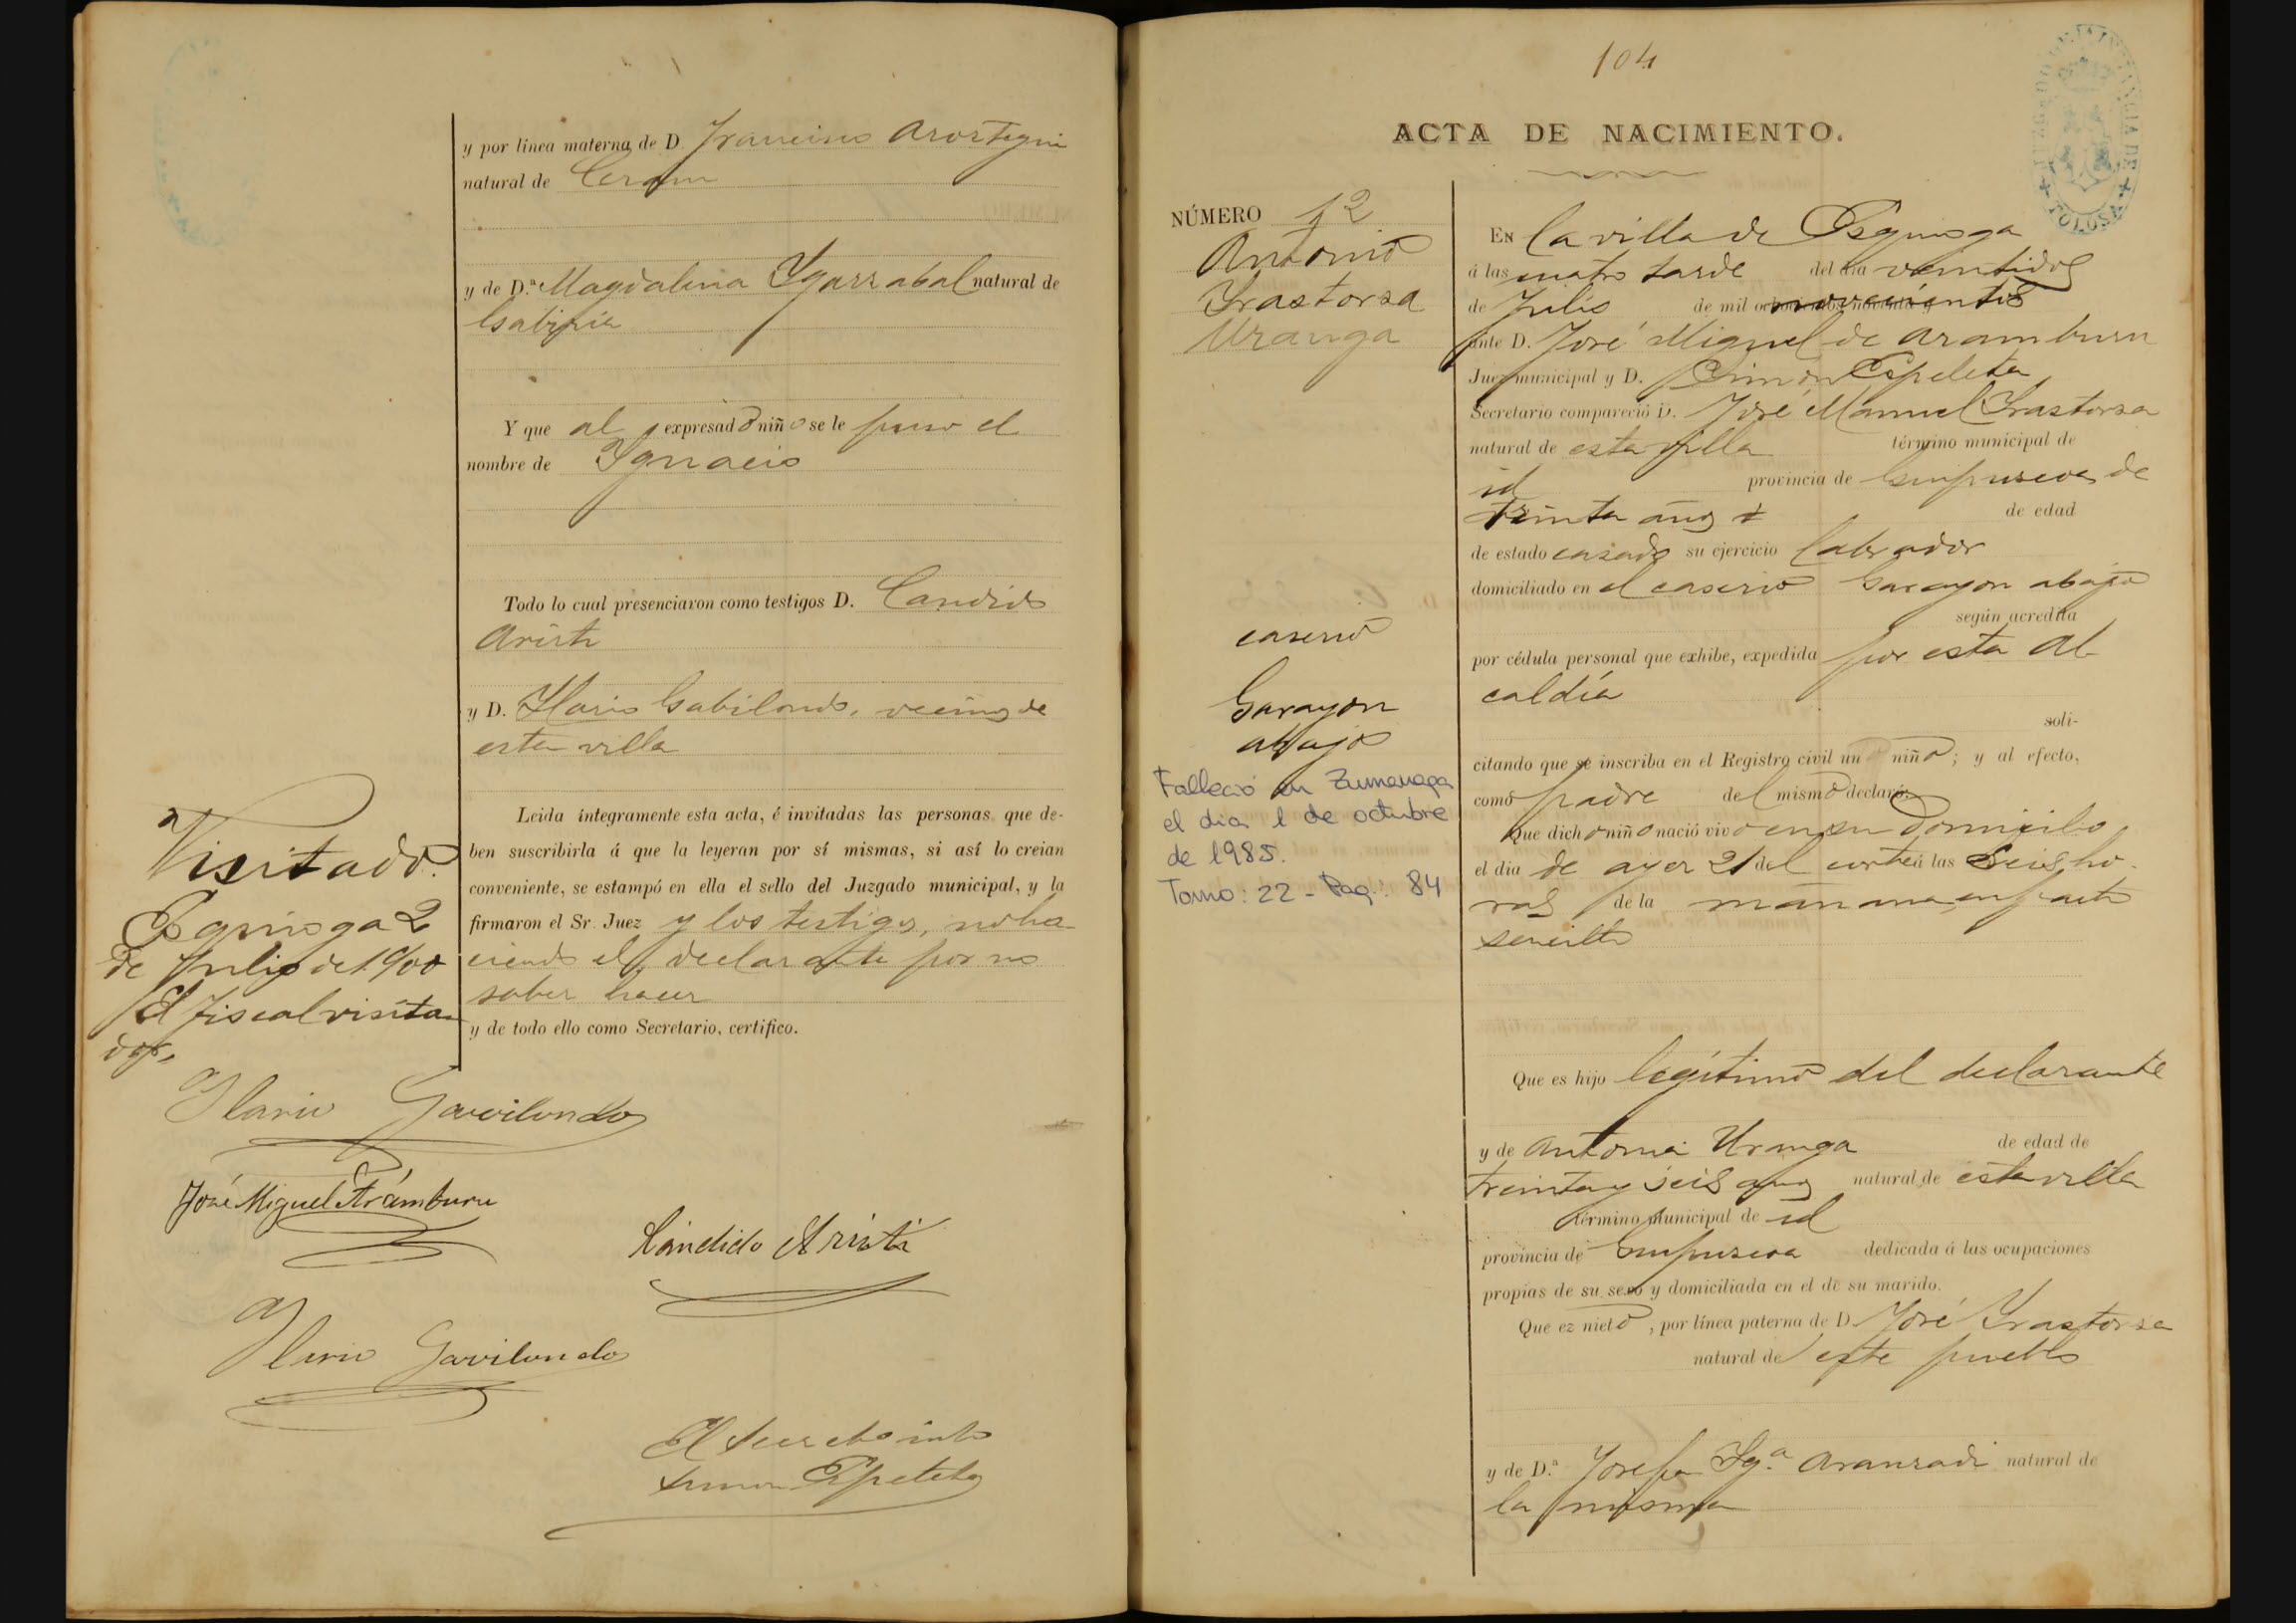 y por línea materna de D. Francisco Arostegui
natural de Cerain
y de D.ª Magdalena Ygarzabal natural de
Gabiria
Y que al expresado niño se le puso el
nombre de Ygnacio
Todo lo cual presenciaron como testigos D. Candido
Aristi
y D. Ylario Gabilondo, vecinos de
esta villa
Leida íntegramente esta acta, é invitadas las personas que de-
ben suscribirla á que la leyeran por sí mismas, si así lo creian
conveniente, se estampó en ella el sello del Juzgado municipal, y la
firmaron el Sr. Juez y los testigos, no ha-
ciendo el declarante por no
saber hacer
y de todo ello como Secretario, certifico.
Visitado.
Ezquioga 2
de Julio de 1900
El Fiscal visita-
dor,
Ylario Gavilondo
José Miguel Aramburu
Cándido Aristi
Ylario Gavilondo
El Secretario
Simon Espeleta
104
ACTA DE NACIMIENTO.
JUZGADO DE 1.ª INSTANCIA DE
TOLOSA
NÚMERO 12
Antonio
Yrastorza
Uranga
caserio
Garayon
abajo
Falleció en Zumarraga
el dia 1 de octubre
de 1985.
Tomo: 22 - Pag.: 84
En la villa de Ezquioga
á las cuatro tarde del dia veintidos
de Julio de mil novecientos
ante D. José Miguel de Aramburu
Juez municipal y D. Simón Espeleta
Secretario compareció D. José Manuel Yrastorza
natural de esta villa término municipal de
id provincia de Guipuzcoa de
treinta años de edad
de estado casado su ejercicio labrador
domiciliado en el caserio Garayon abajo
según acredita
por cédula personal que exhibe, expedida por esta Al-
caldía
soli-
citando que se inscriba en el Registro civil un niño; y al efecto,
como padre del mismo declaró:
Que dicho niño nació vivo en su domicilio
el dia de ayer 21 del corrte á las seis ho-
ras de la mañana, en parto
sencillo
Que es hijo legítimo del declarante
y de Antonia Uranga de edad de
treinta y seis años natural de esta villa
término municipal de id
provincia de Guipuzcoa dedicada á las ocupaciones
propias de su sexo y domiciliada en el de su marido.
Que ez nieto, por línea paterna de D. José Yrastorza
natural de este pueblo
y de D.ª Josefa Yg.ª Aranzadi natural de
la misma